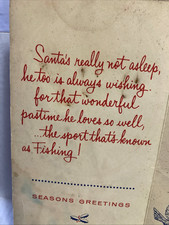 Santa's really not asleep,
he too is always wishing.
for that wonderful
pastime he loves so well,
...the sport that's known
as Fishing!
SEASONS GREETINGS